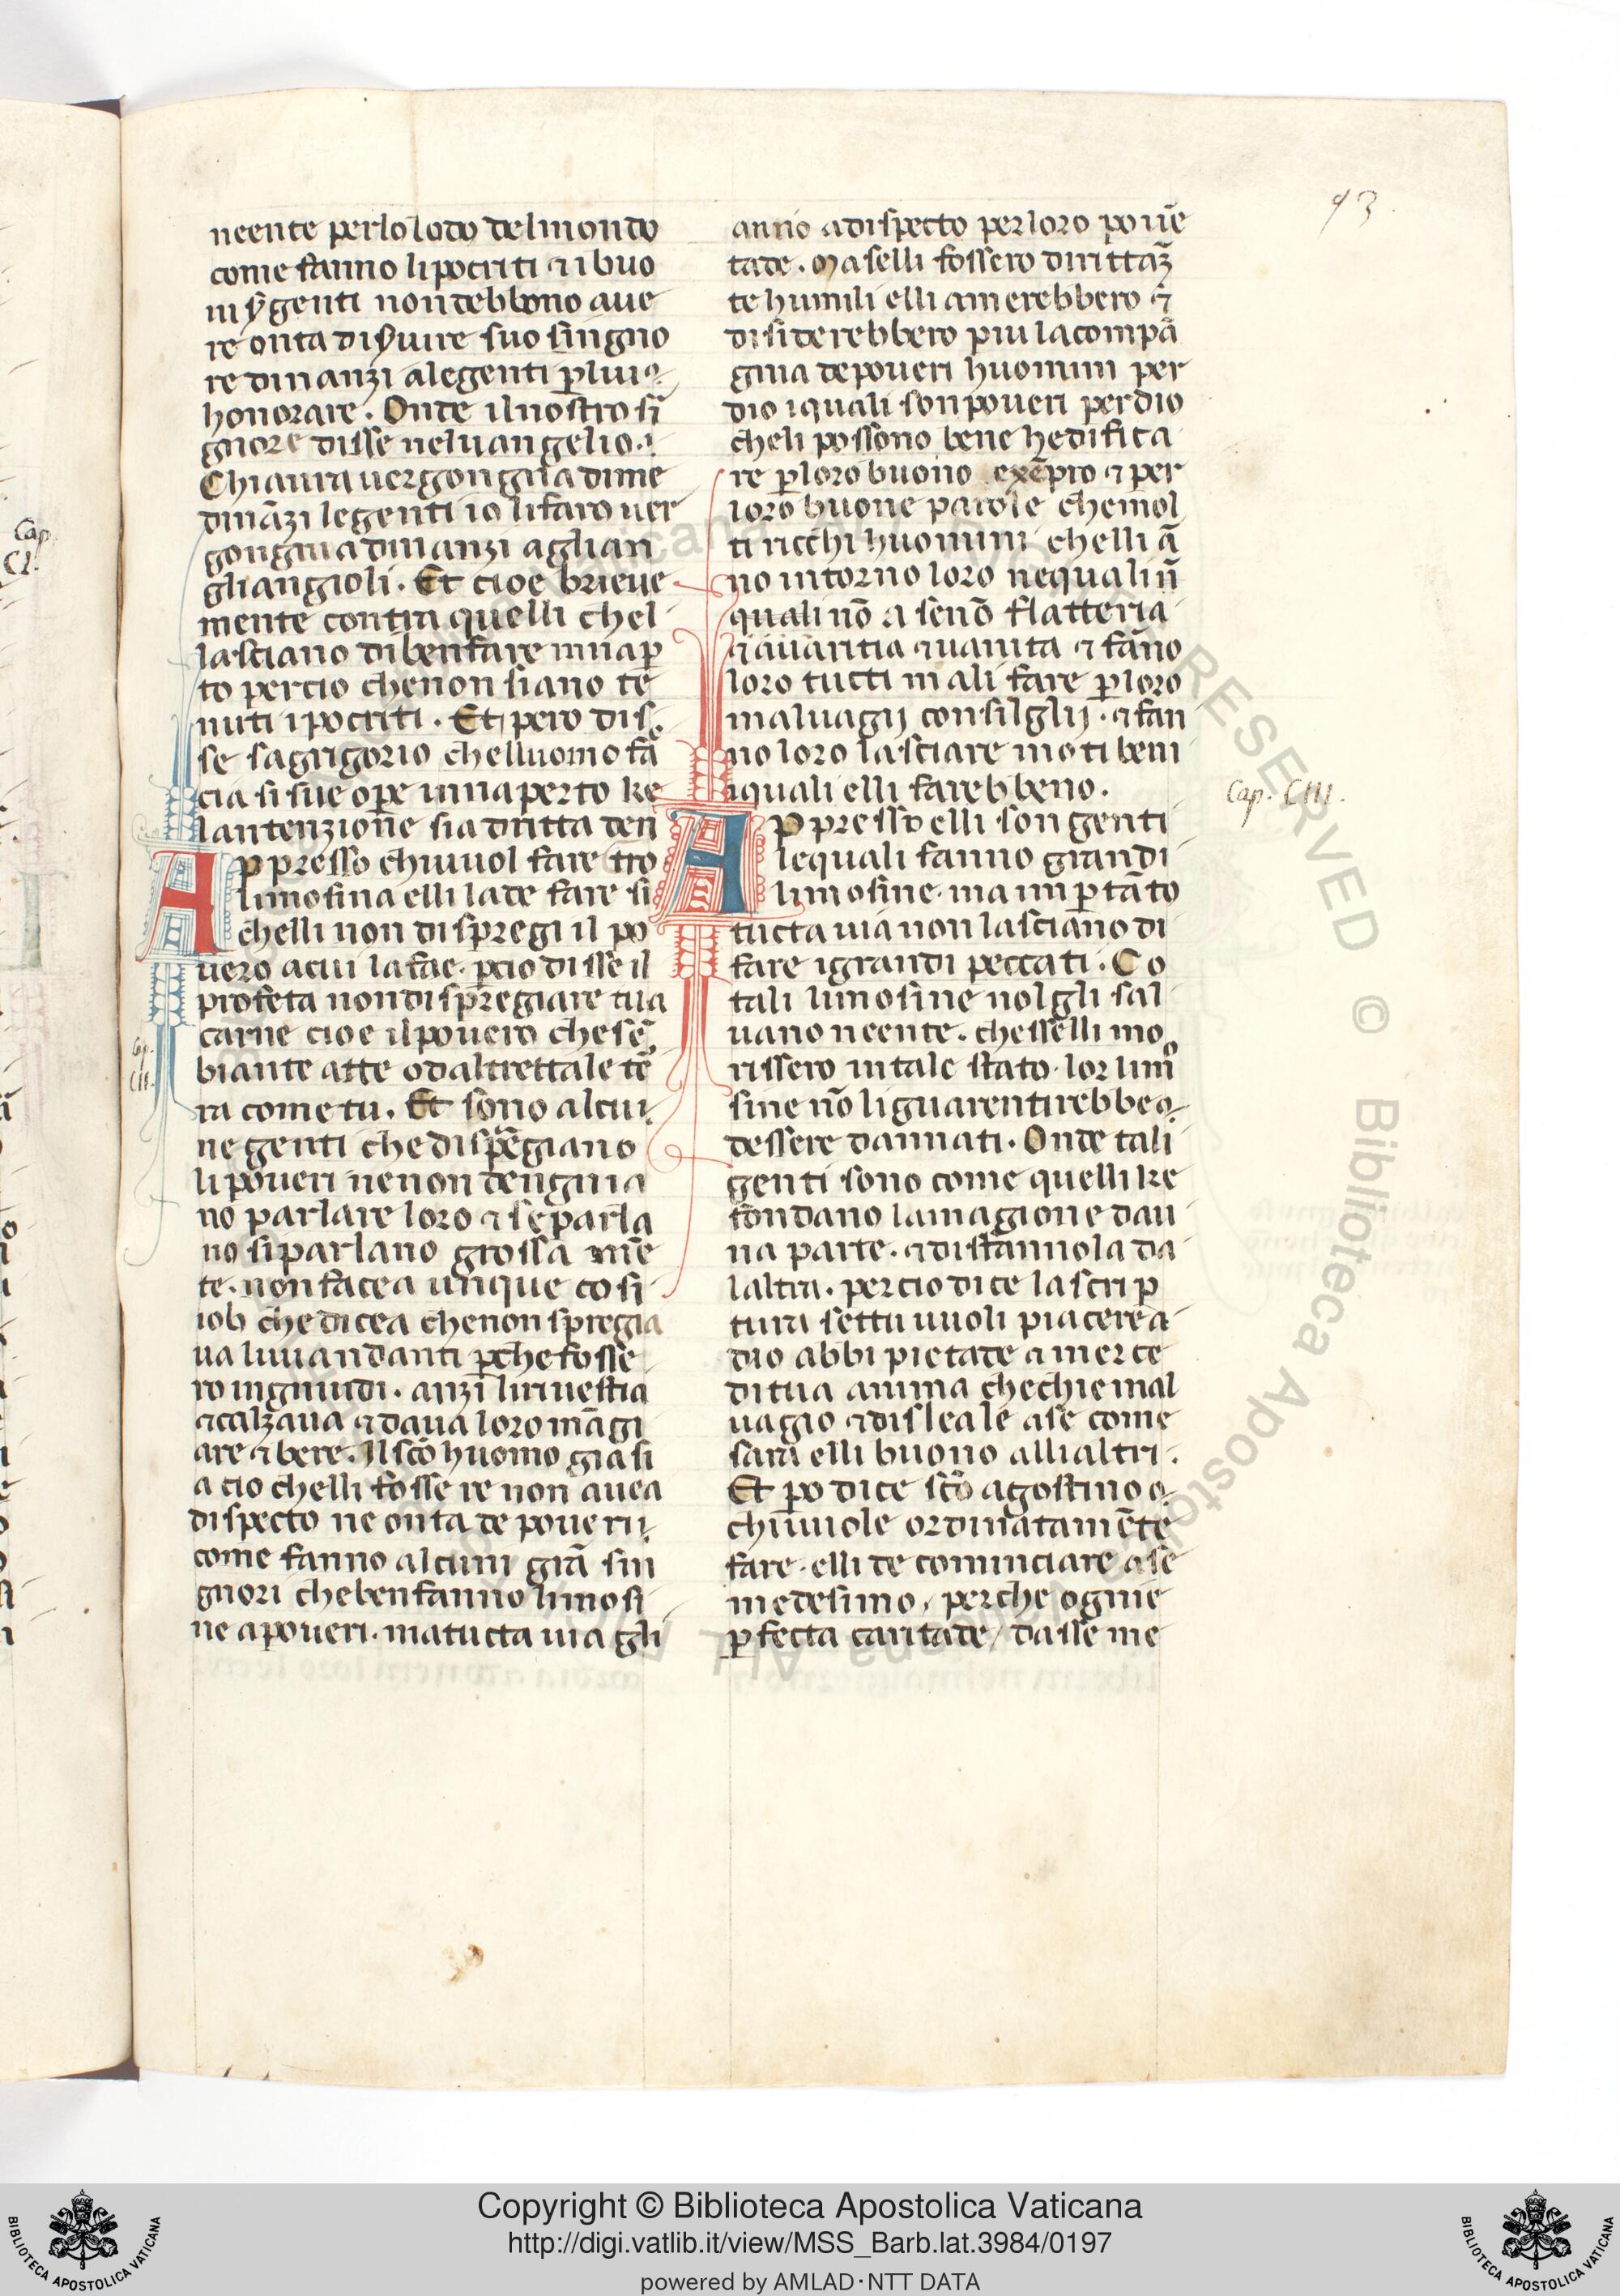 93
neente perlo lodo delmondo
come fanno lipocriti ⁊ i buo
ni ꝟgenti non debbono aue
re onta di ẜuire suo singno
re dinanzi alegenti ꝑlui
honorare. Onde ilnostro si
gnore disse neluangelio.
Chi aura uergongna dime
dinãzi legenti io lifaro uer
gongnia dinanzi aglian
gliangioli. Et cioe brieue
mente contra quelli chel
lasciano dibenfare innaꝑ
to percio chenon siano te
nuti ipocriti. Et pero dis
se sagrigorio chelluomo fã
cia si sue oꝑe innaperto ke
lantenzione sia dritta den
Cap.
CI.
Appresso chiuuol fare
limosina elli lade fare si
chelli non dispregi il po
uero acui la fae. ꝑcio disse il
profeta nondispregiare tua
carne cioe ilpouero che sẽ
biante atte odaltrettale te
Cap.
CII.
ra come tu. Et sono alcu
ne genti che dispregiano
lipoueri nenon dengnia
no parlare loro ⁊ separla
no siparlano grossa mẽ
te. non facea unque cosi
iob che dicea chenon spregia
ua liuiandanti ꝑche fosse
ro ingnudi. anzi liriuestia
⁊ calzaua ⁊ daua loro mãgi
are ⁊ bere. Il sc̃o huomo gia si
a cio chelli fosse re non auea
dispecto ne onta de poueri
come fanno alcuni grã sin
gnori cheben fanno limosi
ne apoueri. ma tucta uia gli
anno adispecto perloro pouẽ
tade. Ma selli fossero dirittam̃
te humili elli amerebbero ⁊
disiderebbero piu lacompa
gnia depoueri huomini per
dio iquali son poueri perdio
cheli possono bene hedifica
re ꝑloro buono exẽpro ⁊ per
loro buone parole chemol
ti ricchi huomini chelli ã
no intorno loro nequali ñ
quali nõ a senõ flatteria
⁊ auaritia ⁊ uanita ⁊ fãno
loro tucti mali fare ꝑloro
maluagij consilglij. ⁊ fan
no loro lasciare moti beni
iquali elli farebbeno.
Cap. CIII.
Appresso elli son genti
lequali fanno grandi
limosine. ma im ꝑtãto
tucta uia non lasciano di
fare igrandi peccati. Co
tali limosine nolgli sal
uano neente. chesselli mo
rissero in tale stato. lor lim̃
sine nõ liguarentirebbe
dessere dannati. Onde tali
genti sono come quelli ke
fondano lamagione dau
na parte. ⁊ disfannola da
laltra. percio dice la scrip
tura settu uuoli piacere a
dio abbi pietade a merce
di tua anima chechie mal
uagio ⁊ disleale ase come
sara elli buono allialtri.
Et ꝑo dice sc̃o agostino
chiuuole ordinatamẽte
fare. elli de cominciare ase
medesimo, perche ognie
ꝑfecta caritade / dasse me
Copyright © Biblioteca Apostolica Vaticana
http://digi.vatlib.it/view/MSS_Barb.lat.3984/0197
powered by AMLAD·NTT DATA
BIBLIOTECA APOSTOLICA VATICANA
BIBLIOTECA APOSTOLICA VATICANA